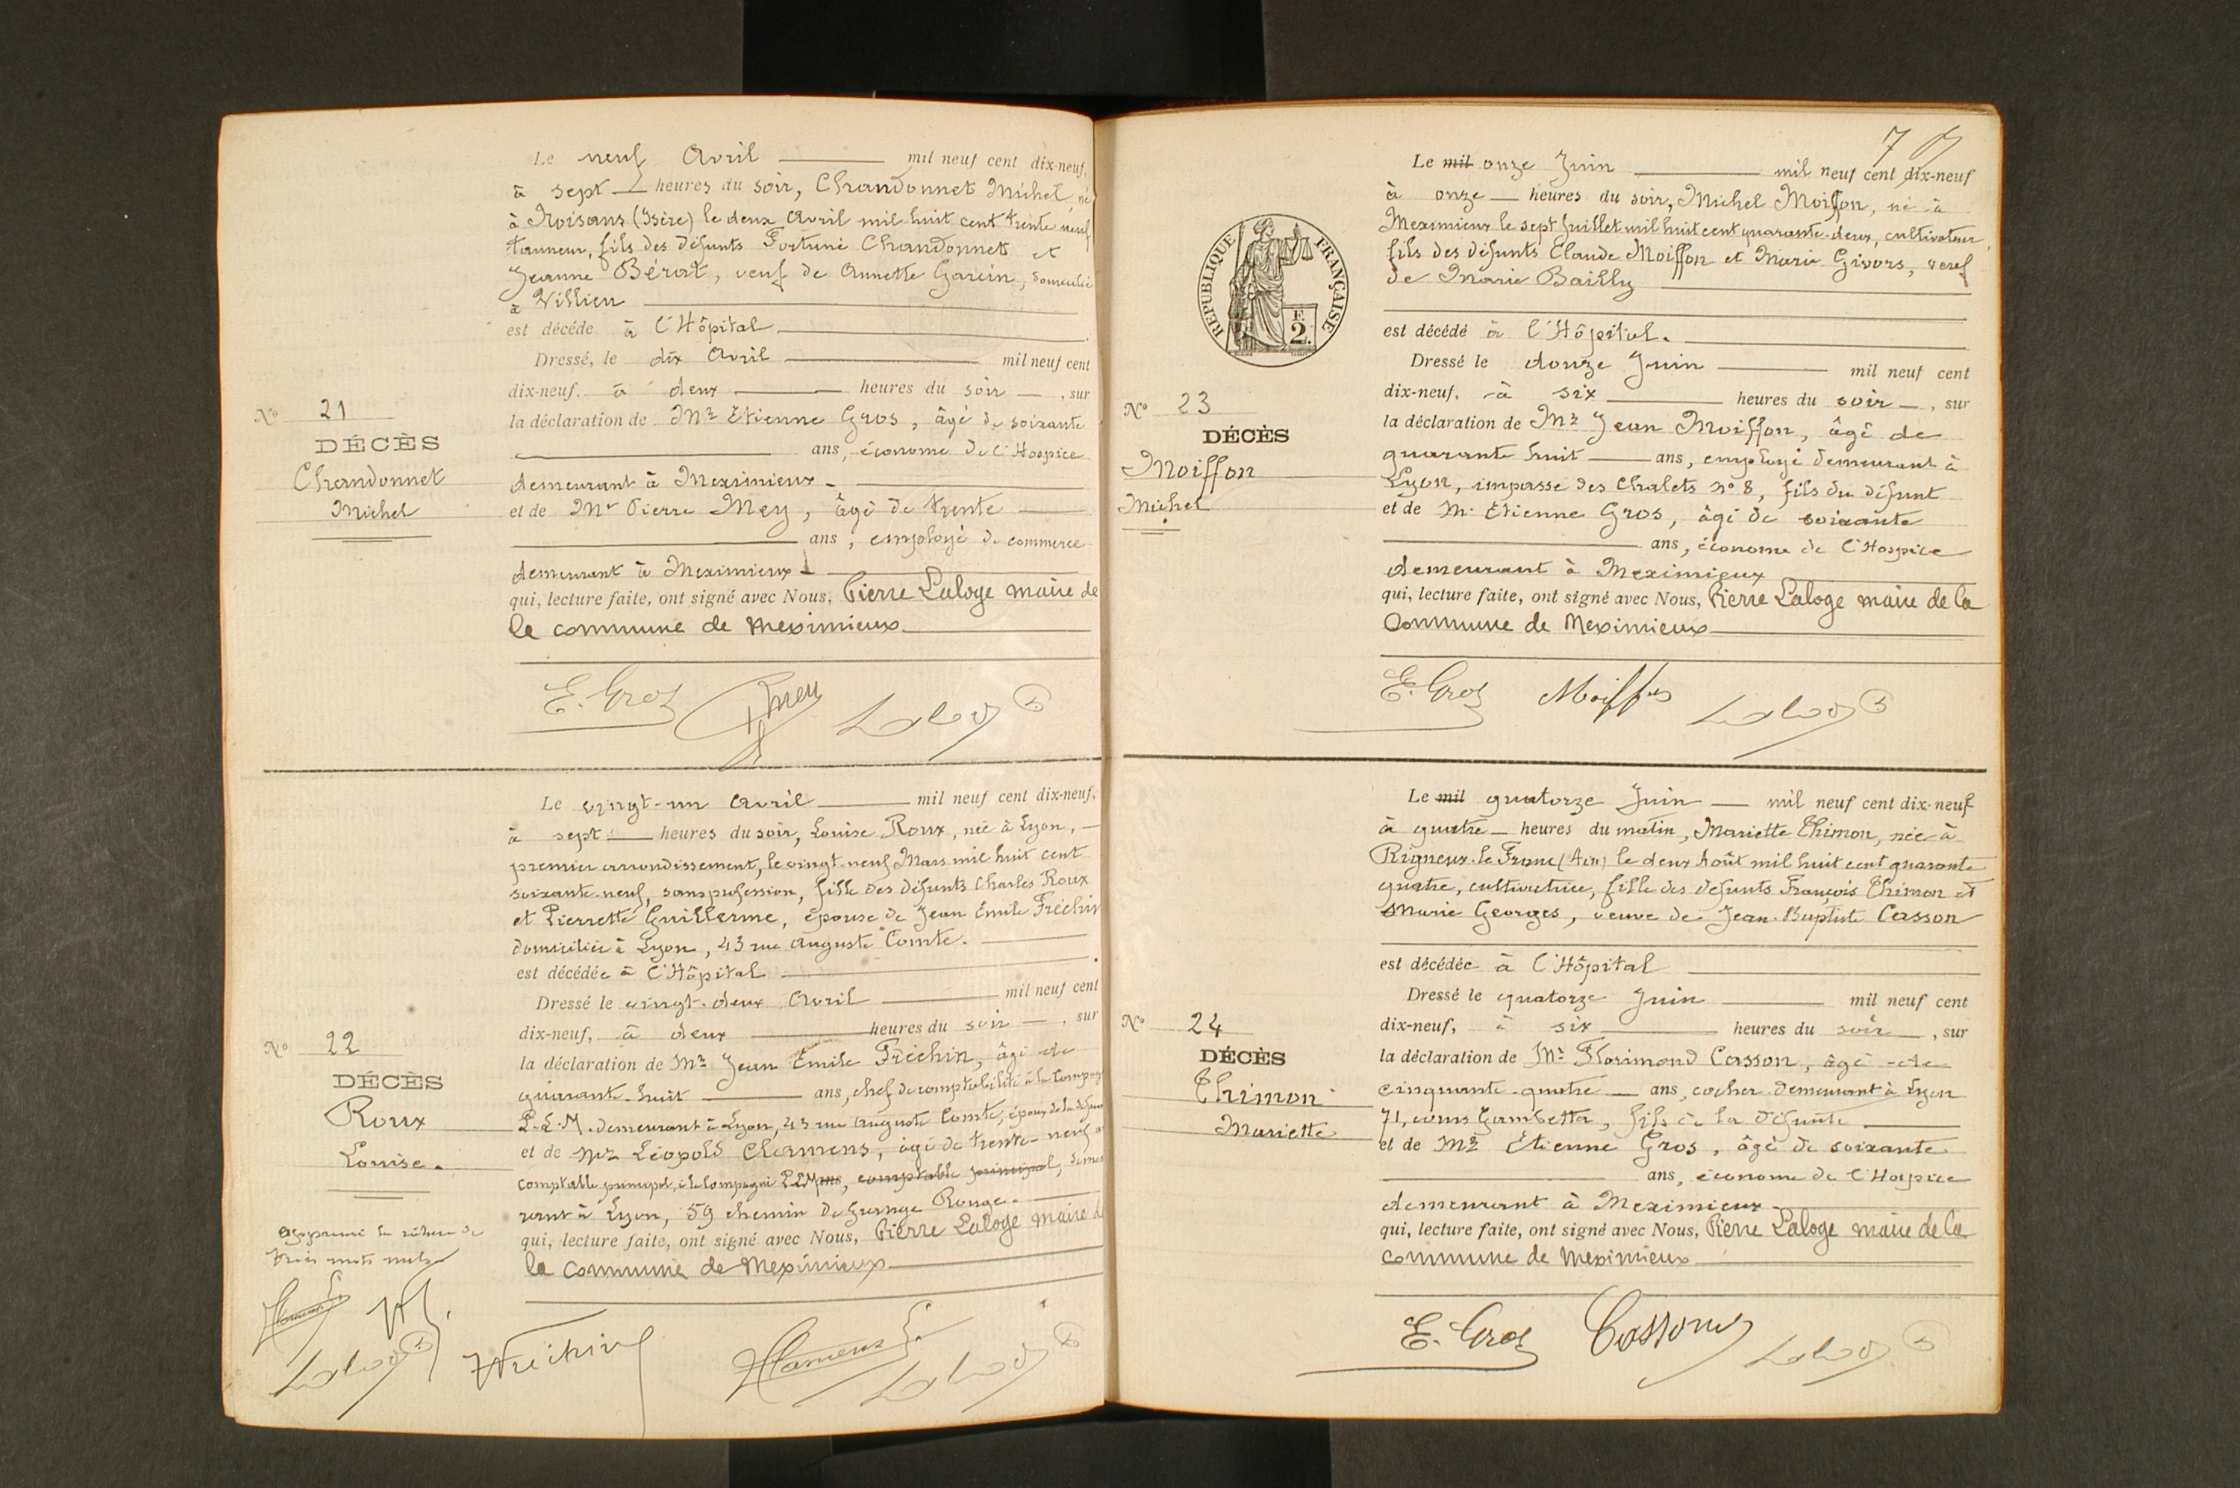 Le neuf Avril mil neuf cent dix-neuf,
à sept heures du soir, Chandonnet Michel, né
à Roisans (Isère) le deux Avril mil huit cent trente neuf
tanneur, fils des défunts Fortuné Chandonnet et
Jeanne Bérat, veuf de Annette Garcin, domicilié
à Villieu
est décédé à l'Hôpital
Dressé, le dix Avril mil neuf cent
dix-neuf. à deux heures du soir, sur
la déclaration de Mr Etienne Gros, âgé de soixante
ans, économe de l'Hospice
demeurant à Meximieux
et de Mr Pierre Mey, âgé de trente
ans, employé de commerce
demeurant à Meximieux
qui, lecture faite, ont signé avec Nous, Pierre Laloge maire de
la commune de Meximieux
No 21
DÉCÈS
Chandonnet
Michel
E. Gros Mey Laloge
Le vingt-un Avril mil neuf cent dix-neuf,
à sept heures du soir, Louise Roux, née à Lyon,
premier arrondissement, le vingt-neuf Mars mil huit cent
soixante-neuf, sans profession, fille des défunts Charles Roux
et Pierrette Guillerme, épouse de Jean Emile Fréchin
domiciliée à Lyon, 43 rue Auguste Comte.
est décédée à l'Hôpital
Dressé le vingt-deux Avril mil neuf cent
dix-neuf, à deux heures du soir, sur
la déclaration de Mr Jean Emile Fréchin, âgé de
quarante-huit ans, chef de comptabilité à la Compag
P.L.M. demeurant à Lyon, 43 rue Auguste Comte, époux de la défun
et de Mr Léopold Clamens, âgé de trente-neuf
comptable principal, à la Compagnie P.L.M ans, comptable principal, demeu
rant à Lyon, 59 chemin de Grange Rouge.
qui, lecture faite, ont signé avec Nous, Pierre Laloge maire d
la commune de Meximieux
No 22
DÉCÈS
Roux
Louise.
Approuvé la rature de
trois mots nuls
Clamens Laloge
Fréchin Clamens Laloge
7
Le mil onze Juin mil neuf cent dix-neuf
à onze heures du soir, Michel Moiffon, né à
Meximieux le sept Juillet mil huit cent quarante-deux, cultivateur,
fils des défunts Claude Moiffon et Marie Givors, veuf
de Marie Bailly
RÉPUBLIQUE FRANÇAISE
F.
2.
est décédé à l'Hôpital.
Dressé le douze Juin mil neuf cent
dix-neuf, à six heures du soir, sur
la déclaration de Mr Jean Moiffon, âgé de
quarante huit ans, employé demeurant à
Lyon, impasse des Chalets no 8, fils du défunt
et de M. Etienne Gros, âgé de soixante
ans, économe de l'Hospice
demeurant à Meximieux
qui, lecture faite, ont signé avec Nous, Pierre Laloge maire de la
Commune de Meximieux
No 23
DÉCÈS
Moiffon
Michel
E. Gros Moiffon Laloge
Le mil quatorze Juin mil neuf cent dix-neuf
à quatre heures du matin, Mariette Thimon, née à
Rigneux-le-Franc (Ain) le deux Août mil huit cent quarante
quatre, cultivatrice, fille des défunts François Thimon et
Marie Georges, veuve de Jean-Baptiste Casson
est décédée à l'Hôpital
Dressé le quatorze Juin mil neuf cent
dix-neuf, à six heures du soir, sur
la déclaration de Mr Florimond Casson, âgé de
cinquante-quatre ans, cocher demeurant à Lyon
71, cours Gambetta, fils de la défunte
et de Mr Etienne Gros, âgé de soixante
ans, économe de l'Hospice
demeurant à Meximieux
qui, lecture faite, ont signé avec Nous, Pierre Laloge maire de la
commune de Meximieux
No 24
DÉCÈS
Thimon
Mariette
E. Gros Casson Laloge